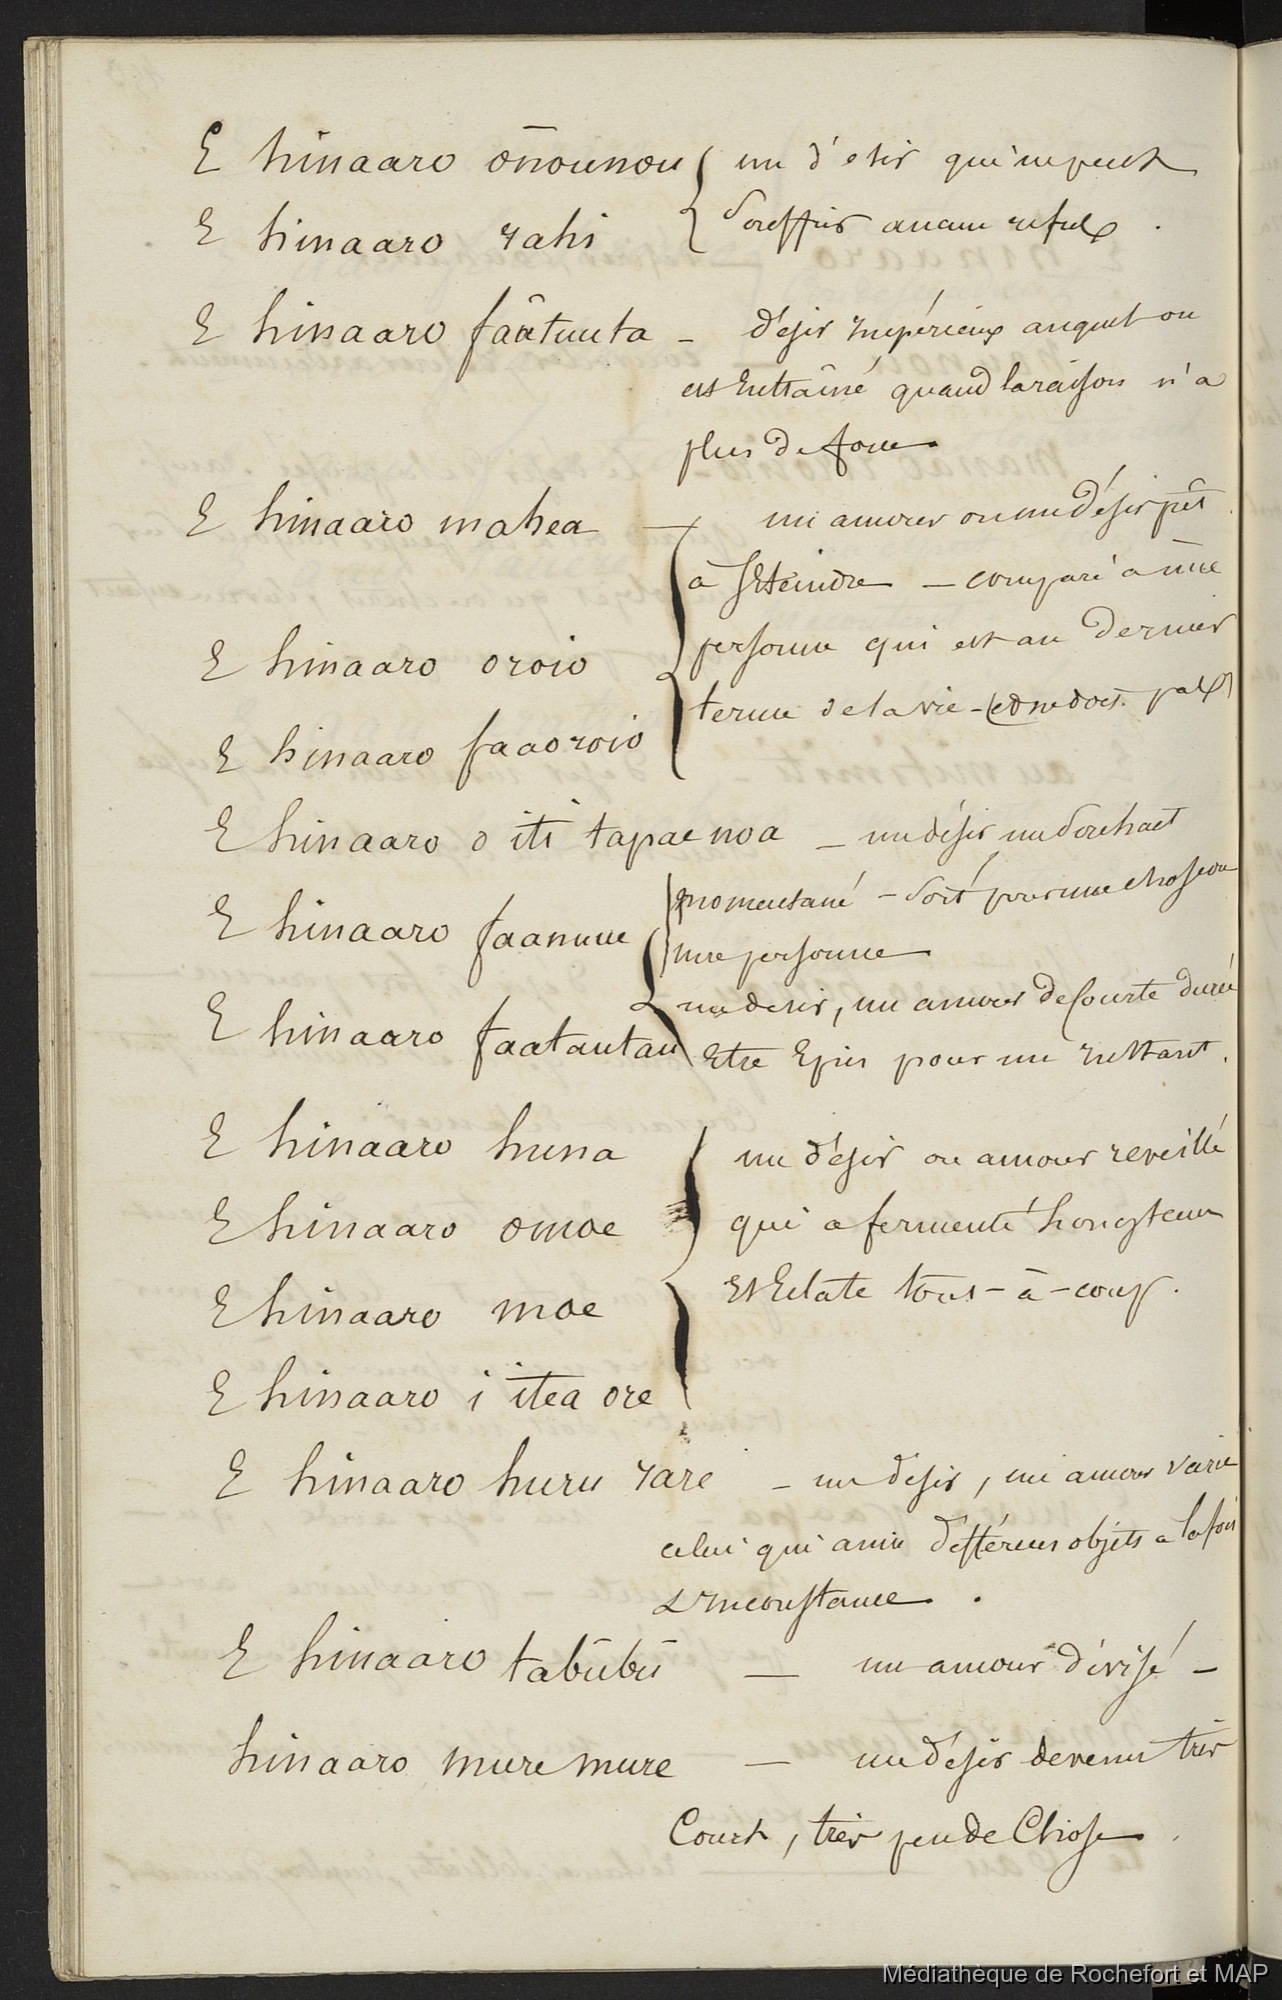 E hinaaro ōnounou { un d'esir qui ne peut
E hinaaro rahi { souffrir aucun refus .
E hinaaro faâtuuta - d'esir impérieux auquel on
est entraîné quand la raison n'a
plus de force
E hinaaro mahea — un amour ou un désir prêt
à s'Eteindre — comparé à une
E hinaaro oroio personne qui est au dernier
terme de la vie - (et ne doit pas)
E hinaaro faaoroio
E hinaaro o iti tapae noa — un désir un souhait
momentané - soit pour une chose ou
E hinaaro faanuue
une personne
un desir, un amour de courte durée
E hinaaro faatautau
Etre Epris pour un instant .
E hinaaro huna un d'esir ou amour reveillé
E hinaaro omoe qui a fermenté longtems
E hinaaro moe et Eclate tous-à-coup .
E hinaaro i itea ore
E hinaaro huru rare - un desir, un amour varié
celui qui aime différens objets a la fois
inconstance .
E hinaaro tabūbū — un amour divisé -
hinaaro muremure — un d'esir devenu très
Court, très peu de Chose .
Médiathèque de Rochefort et MAP